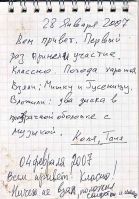 28 Января 2007
Всем привет. Первый
раз приняли участие.
Классно. Погода хорошая
Взяли: Мишку и Гусеницу.
Вложили: два диска в
прозрачной обложке с
музыкой.
Коля, Таня
04 февраля 2007
Всем привет! Классно!
Ничего не взял, положил